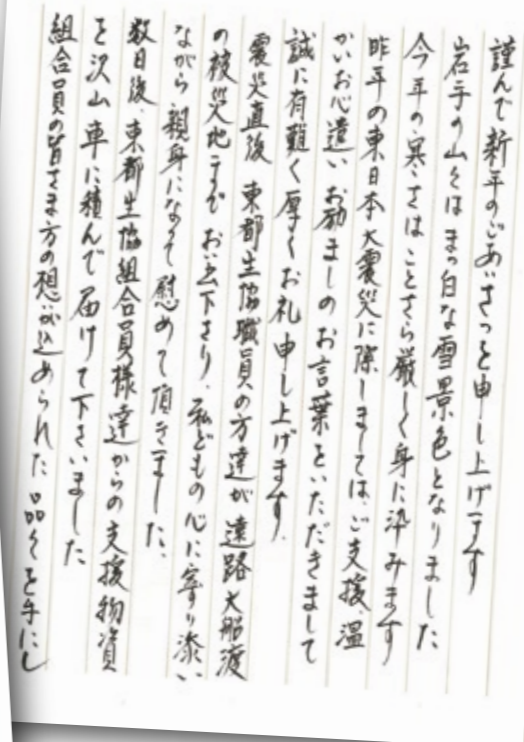 謹んで新年のごあいさつを申し上げます
岩手の山々はまっ白な雪景色となりました
今年の寒さはことさら厳しく身に沁みます
昨年の東日本大震災に際しましては、ご支援、温
かいお心遣い お励ましのお言葉をいただきまして
誠に有難く厚くお礼申し上げます。
震災直後 東都生協職員の方達が遠路大船渡
の被災地までお出下さり、私どもの心に寄り添い
ながら親身になって慰めて頂きました、
数日後、東都生協組合員様達からの支援物資
を沢山車に積んで届けて下さいました
組合員の皆さま方の想いが込められた品々を手にし